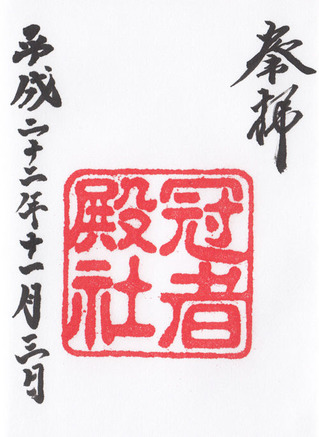 奉拝
冠者
殿社
平成二十二年十一月三日